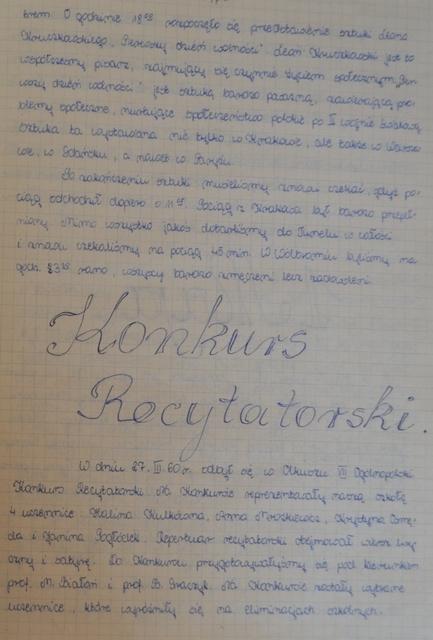 krem. O godzinie 18⁰⁰ rozpoczęło się przedstawienie sztuki Leona
Kruczkowskiego „Pierwszy dzień wolności". Leon Kruczkowski jest to
współczesny pisarz, zajmujący się czynnie życiem społecznym. „Pier
wszy dzień wolności" jest sztuką bardzo poważną, zawierającą pro
blemy społeczne, nurtujące społeczeństwo polskie po II wojnie światowej
Sztuka ta wystawiana nie tylko w Krakowie, ale także w Warsza
wie, w Gdańsku, a nawet w Paryżu.
Po zakończeniu sztuki musieliśmy znowu czekać, gdyż po
ciąg odchodził dopiero o Pociąg z Krakowa był bardzo przepeł
niony. Mimo wszystko jakoś dobrnęliśmy do Tunelu w całości
i znowu czekaliśmy na pociąg 45 min. W Wolbromiu byliśmy na
godz. rano, wszyscy bardzo zmęczeni lecz zadowoleni.
Konkurs
Recytatorski.
W dniu 27. III. 60 r. odbył się w Olkuszu VII Ogólnopolski
Konkurs Recytatorski. Na Konkursie reprezentowały naszą szkołę
4 uczennice: Halina Kulkówna, Anna Krystyna
da i Janina Repertuar recytatorski obejmował wiersz liry
czny i satyrę. Do Konkursu przygotowywałyśmy się pod kierunkiem
prof. M. Białoń i prof. B. Graczyk. Na Konkurs zostały wybrane
uczennice, które wyróżniły się na eliminacjach szkolnych.